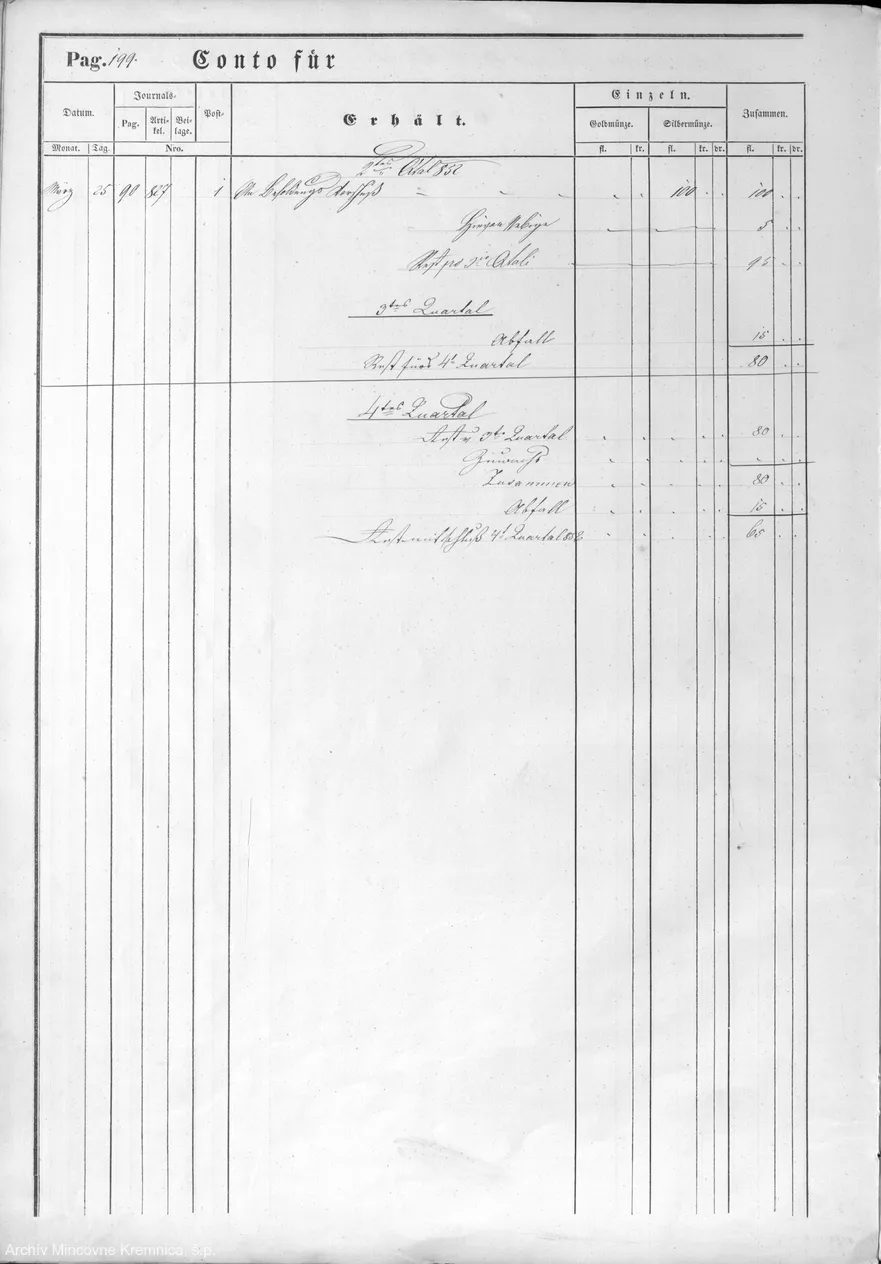 Pag. 199. Conto für
Datum. Journals- Post- Erhält. Einzeln. Zusammen.
Pag. Arti-kel. Bei-lage. Goldmünze. Silbermünze.
Monat. Tag. Nro. fl. kr. fl. kr. dr. fl. kr. dr.
2tes Qtal 852
März 25 90 827 1 An Besoldungs Vorschuß - - - 100 . . 100 . .
Hievon 5 . .
Rest pro 3ten Qtali 95 . .
3tes Quartal
Abfall 15 . .
Rest fürs 4t Quartal 80 . .
4tes Quartal
Rest v 3tn Quartal . . . . . 80 . .
Zuwachs . . . . . . . .
Zusammen . . . . . 80 . .
Abfall . . . . . 15 . .
Rest mit Schluß 4t Quartal 852 . . . . . 65 . .
Archív Mincovne Kremnica, š.p.